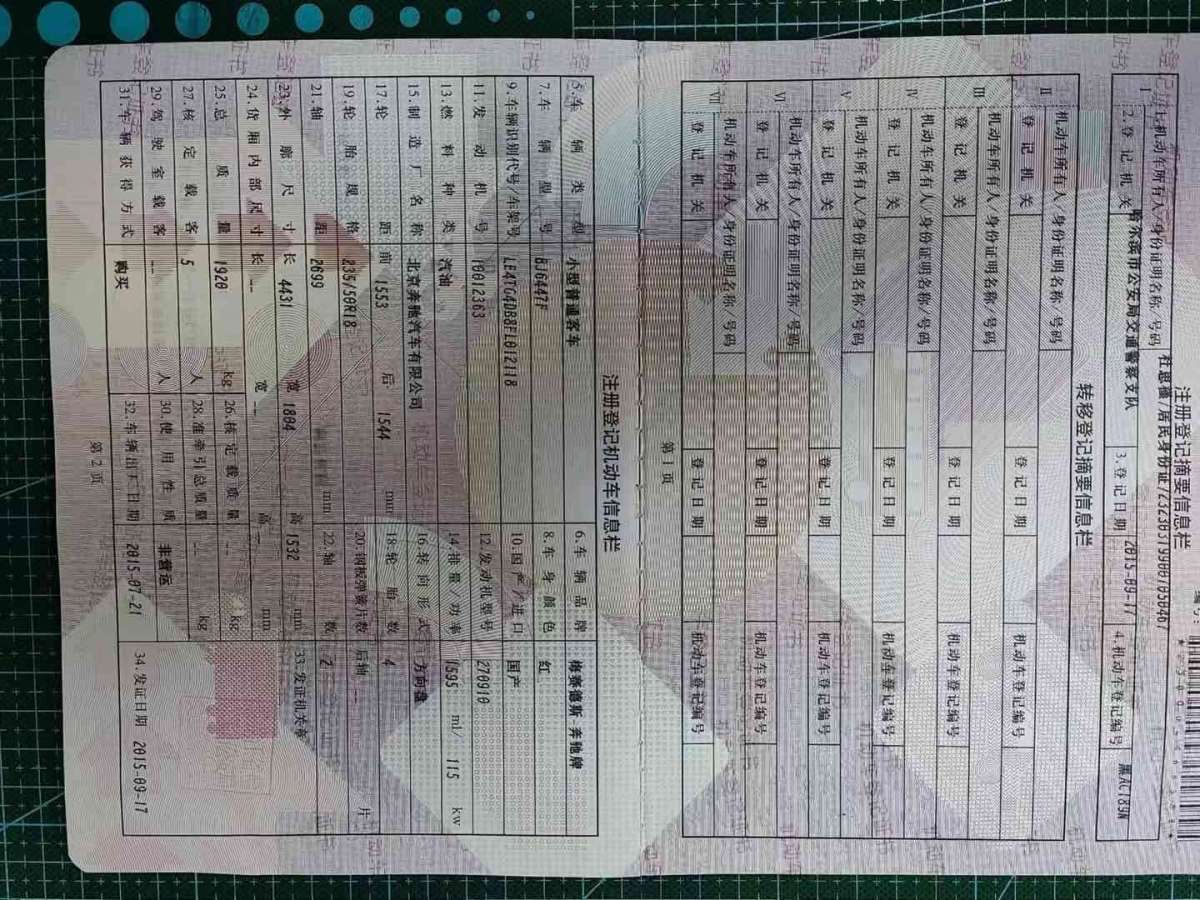 注册登记摘要信息栏
1.机动车所有人/身份证明名称/号码
2.登记机关 哈尔滨市公安局交通警察支队 3.登记日期 2015-09-17 4.机动车登记编号
转移登记摘要信息栏
机动车所有人/身份证明名称/号码
II 登记机关 登记日期 机动车登记编号
机动车所有人/身份证明名称/号码
III 登记机关 登记日期 机动车登记编号
机动车所有人/身份证明名称/号码
IV 登记机关 登记日期 机动车登记编号
机动车所有人/身份证明名称/号码
V 登记机关 登记日期 机动车登记编号
机动车所有人/身份证明名称/号码
VI 登记机关 登记日期 机动车登记编号
机动车所有人/身份证明名称/号码
VII 登记机关 登记日期 机动车登记编号
第1页
注册登记机动车信息栏
5.车辆类型 小型普通客车 6.车辆品牌 梅赛德斯奔驰牌
7.车辆型号 BJ6447F 8.车身颜色 红
9.车辆识别代号/车架号 LE4TG4DB8FL012118 10.国产/进口 国产
11.发动机号 10012363 12.发动机型号 270910
13.燃料种类 汽油 14.排量/功率 1595 ml/ 115 kw
15.制造厂名称 北京奔驰汽车有限公司 16.转向形式 方向盘
17.轮距 前 1553 后 1544 mm 18.轮胎数 4
19.轮胎规格 235/50R18 20.钢板弹簧片数 后轴 -- 片
21.轴距 2699 mm 22.轴数 2
23.外廓尺寸 长 4431 宽 1804 高 1532 mm 33.发证机关章
24.货厢内部尺寸 长 -- 宽 -- 高 -- mm
25.总质量 1920 kg 26.核定载质量 -- kg
27.核定载客 5 人 28.准牵引总质量 -- kg
29.驾驶室载客 -- 人 30.使用性质 非营运
31.车辆获得方式 购买 32.车辆出厂日期 2015-07-21 34.发证日期 2015-09-17
第2页